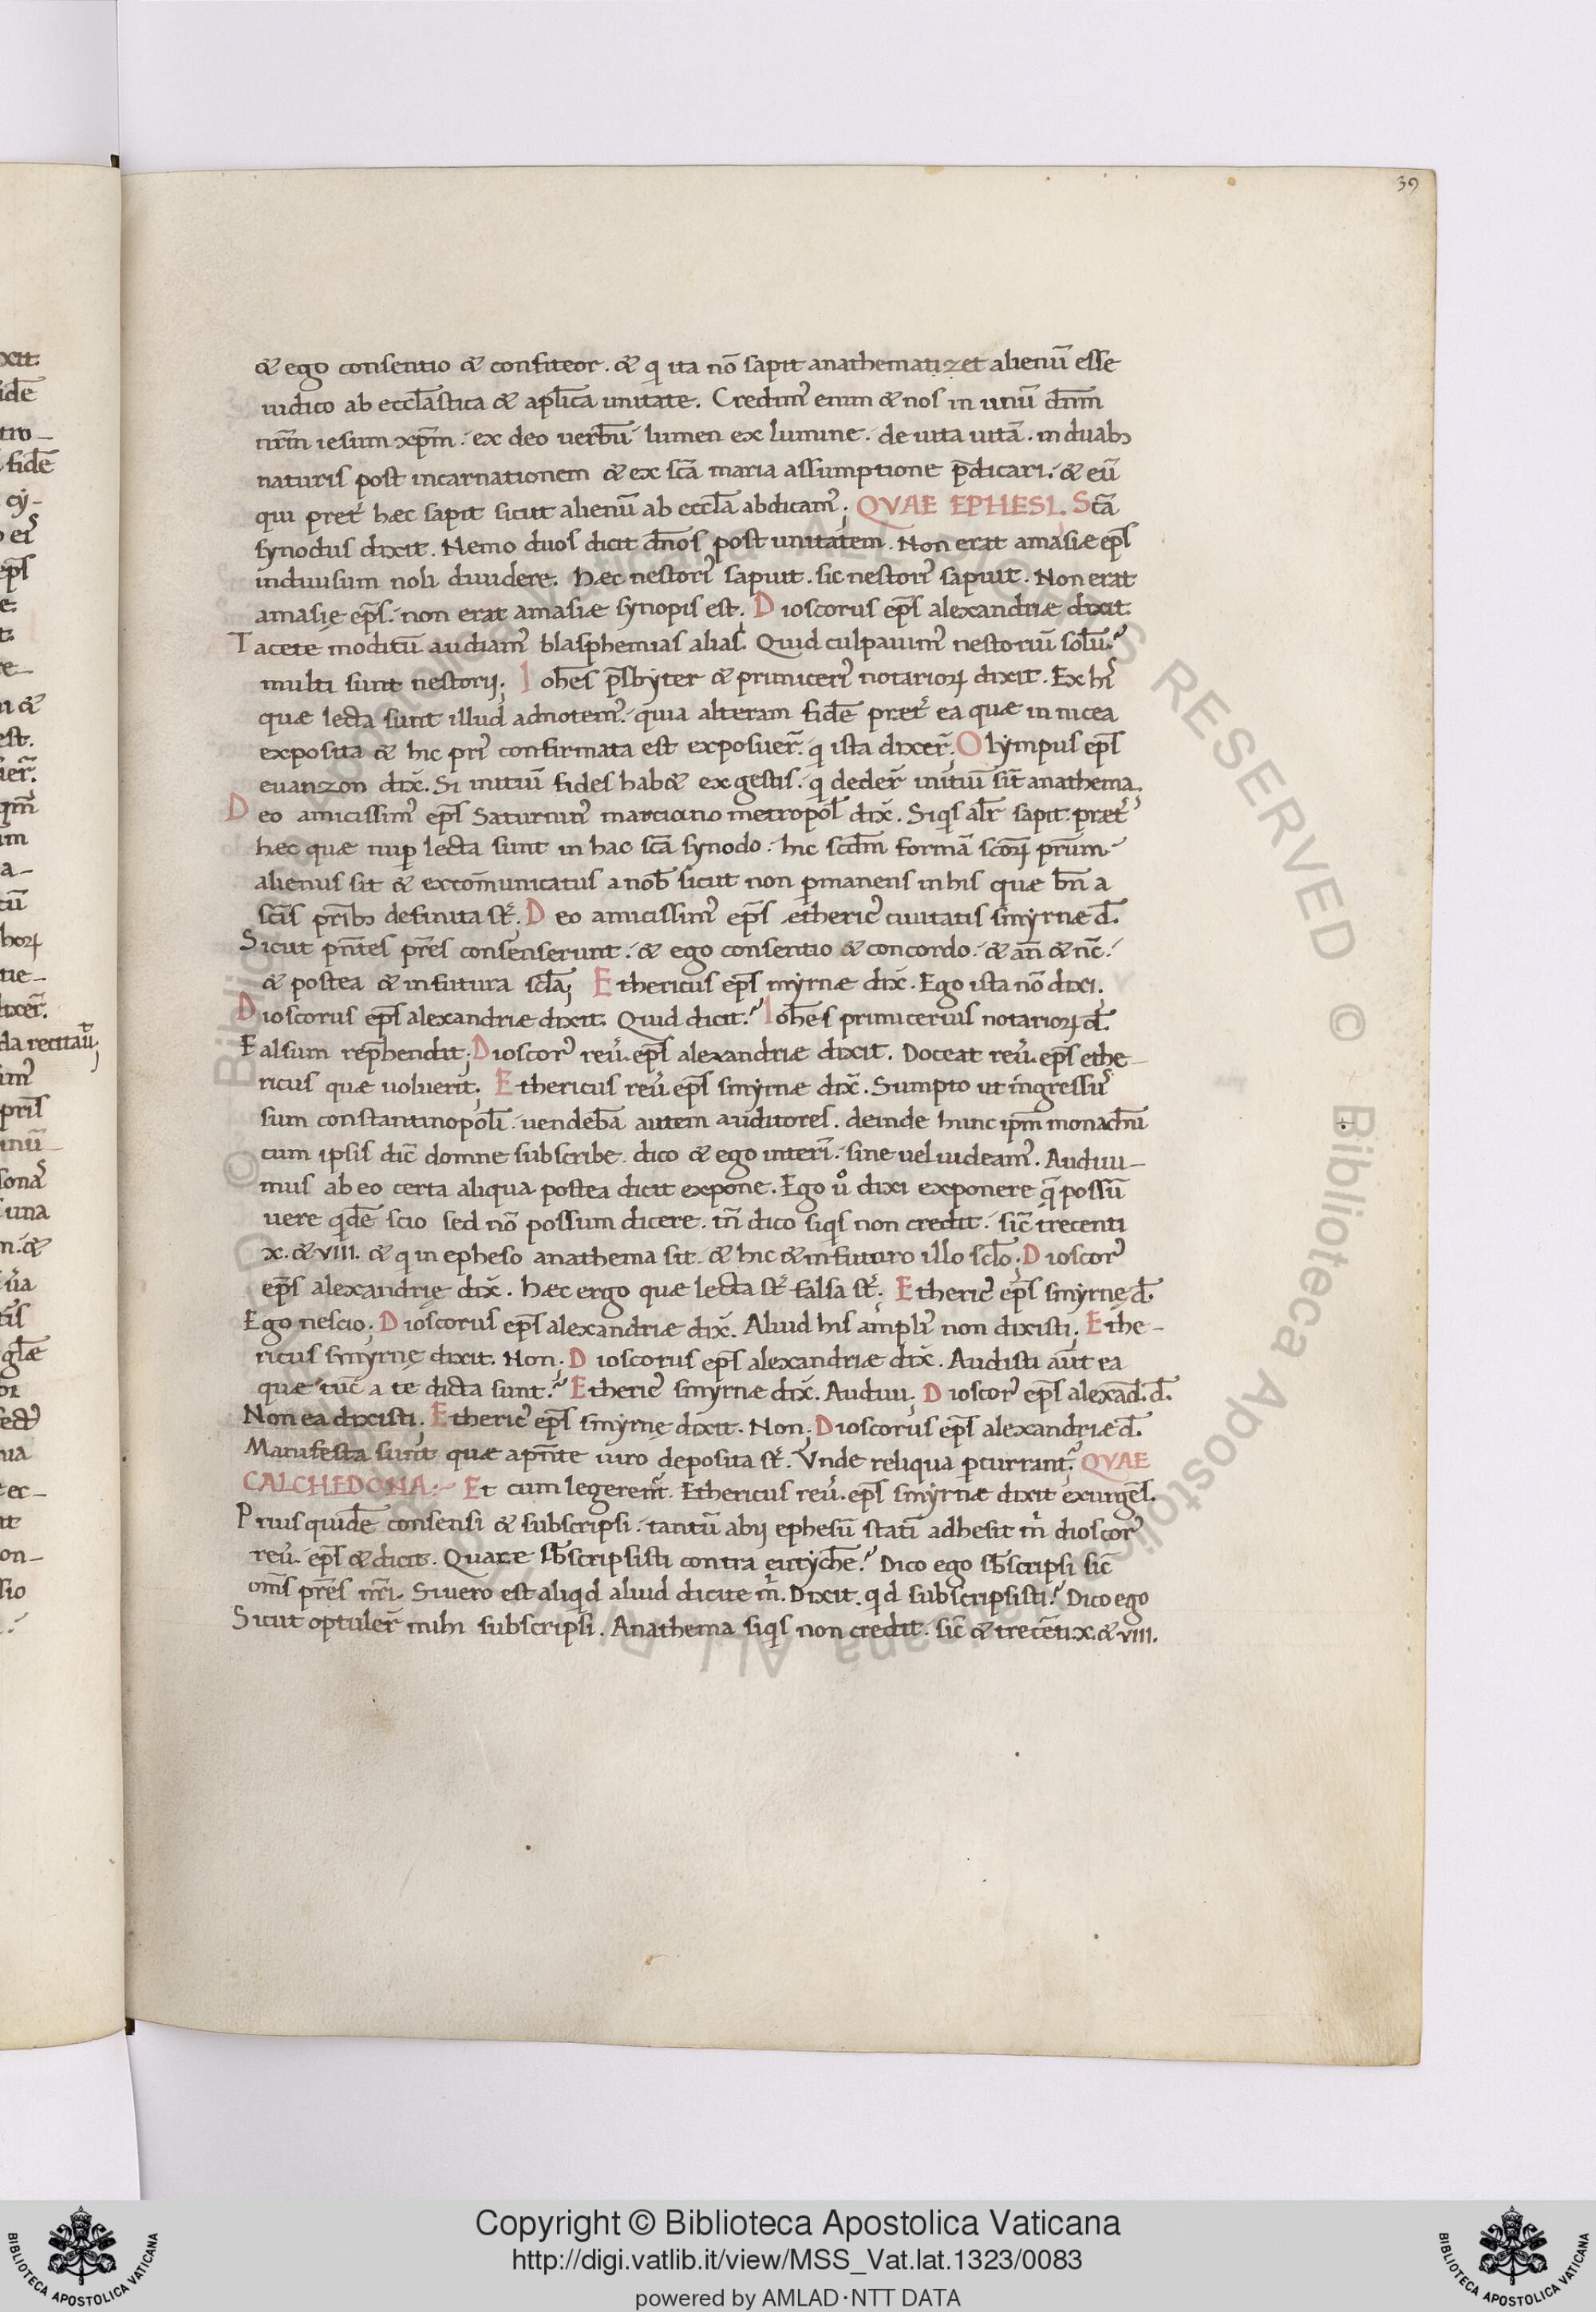 39
& ego consentio & confiteor. & q ita nō sapit anathematizet alienū esse
iudico ab eccl̄astica & apl̄ica unitate. Credim᾽ enim & nos in unū dn̄m
nr̄m iesum xp̄m. ex deo uerbū lumen ex lumine. de uita uitā. in duabꝫ
naturis post incarnationem & ex scā maria assumptione p̄dicari. & eū
qui pret̓ hęc sapit sicut alienū ab eccl̄a abdicam᾽; QVAE EPHESI. Scā
synodus dixit. Nemo duos dicit dn̄os post unitatem. Non erat amasiæ ep̄s
induuisum noli diuidere. hæc nestori᾽ sapuit. sic nestori᾽ sapuit. Non erat
amasię ep̄s. non erat amasiæ synopis est; Dioscorus ep̄s alexandriæ dixit.
Tacete modicū audiam᾽ blasphemias alias. Quid culpauim᾽ nestoriū solū?
multi sunt nestorij; Ioh̄es p̄sbyter & primiceri᾽ notarioꝝ dixit. Ex his
quæ lecta sunt illud adnotem᾽. quia alteram fidē pret̓ ea quæ in nicea
exposita & hic pri᾽ confirmata est exposuer̄. q ista dixer̄; Olympus ep̄s
euanzon dix̄. Si initiū fides hab& ex gestis. q deder̄ initiū sīt anathema;
Deo amicissim᾽ ep̄s Saturnin᾽ marciano metropol̄ dix̄. Siqs al̄r sapit. præt̓
hęc quæ nup lecta sunt in hac scā synodo. hic scdm̄ formā scōꝝ pr̄um
alienus sit & excōmunicatus a nob̄ sicut non pmanens in his quæ bn̄ a
scīs prībꝫ definita st̄; Deo amicissim᾽ ep̄s ætheric᾽ ciuitatis smyrnæ d̄.
Sicut pn̄tes pr̄es consenserunt. & ego consentio & concordo. & an̄ & nc̄.
& postea & in futura scl̄a; Ethericus ep̄s myrnæ dix̄. Ego ista nō dixi;
Dioscorus ep̄s alexandriæ dixit. Quid dicit? Ioh̄es primicerius notarioꝝ d̄.
Falsum rep̄hendit; Dioscor᾽ reu̓. ep̄s alexandriæ dixit. Doceat reu̓. ep̄s ethe-
ricus quæ uoluerit; Ethericus reu̓ ep̄s smyrnæ dix̄. Sumpto ut ingressu᾽
sum constantinopolī. uendebā autem auditores. deinde hunc ipm̄ monachū
cum ipsis dic̄ domne subscribe. dico & ego interi. sine uel uideam᾽. Audiui-
mus ab eo certa aliqua postea dicit expone. Ego u̓o dixi exponere q̄ possū
uere qdē scio sed nō possum dicere. in̄ dico siqs non credit. sic̄ trecenti
x. & viii. & q in epheso anathema sit. & hic & in futuro illo scl̄o; Dioscor᾽
ep̄s alexandrię dix̄. hæc ergo quæ lecta st̄ falsa st̄; Etheric᾽ ep̄s smyrnę d̄.
Ego nescio; Dioscorus ep̄s alexandriæ dix̄. Aliud his ampli᾽ non dixisti; Ethe-
ricus smyrnę dixit. Non; Dioscorus ep̄s alexandriæ dix̄. Audisti aūt ea
quæ tūc a te dicta sunt? Etheric᾽ smyrnæ dix̄. Audiui; Dioscor᾽ ep̄s alexad̄. d̄.
Non ea dixisti; Etheric᾽ ep̄s smyrnę dixit. Non; Dioscorus ep̄s alexandriæ d̄.
Manifesta sunt quæ a pn̄te uiro deposita st̄. Vnde reliqua pcurrant; QVAE
CALCHEDONA: Et cum legerent̓. Ethericus reu̓. ep̄s smyrnæ dixit exurgēs.
Prius quidē consensi & subscripsi. tantū abij ephesū statī adhesit m̓ dioscor᾽
reu̓. ep̄s & dicit. Quare sb̄scripsisti contra eutychē? Dico ego sb̄scripsi sic̄
om̄s pr̄es nr̄i. Si uero est aliqd aliud dicite m̓. Dixit. qd subscripsisti? Dico ego
Sicut optuler̄ mihi subscripsi. Anathema siqs non credit. sic̄ & trecēti x. & viii.
Copyright © Biblioteca Apostolica Vaticana
http://digi.vatlib.it/view/MSS_Vat.lat.1323/0083
powered by AMLAD·NTT DATA